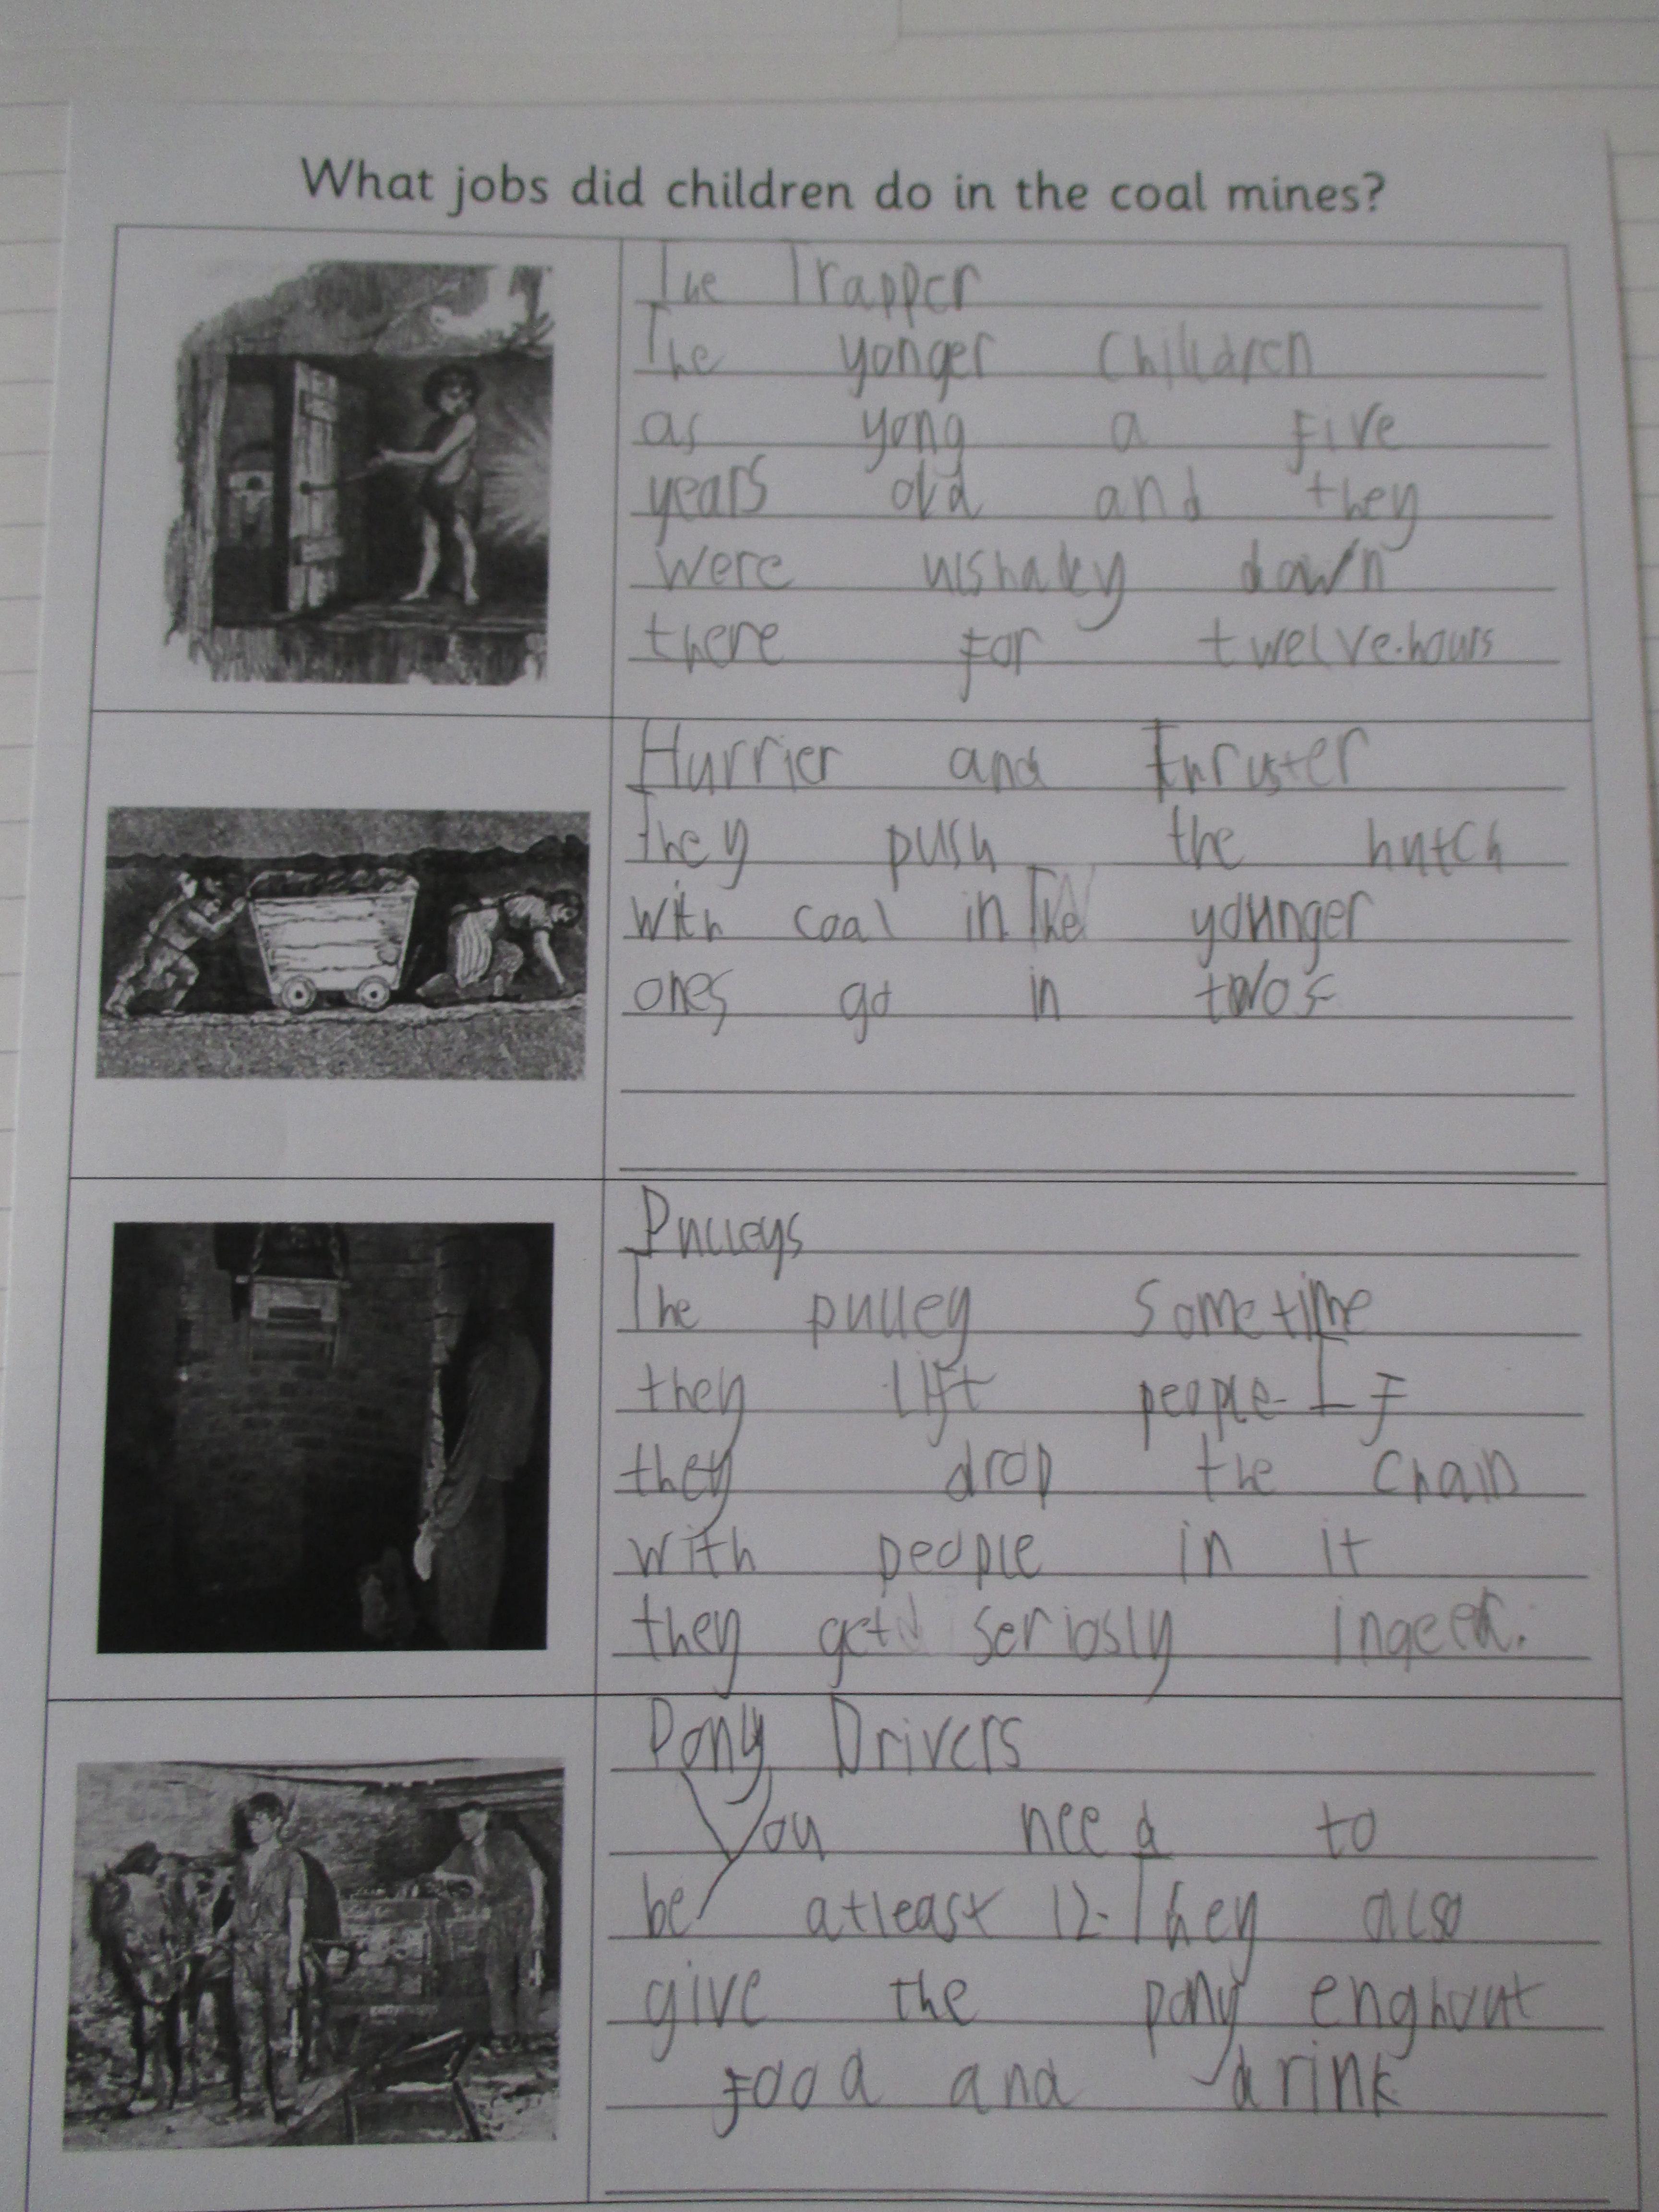 What jobs did children do in the coal mines?
The Trapper
The yonger Chilldren
as yong a five
years old and they
were ulshaley down
there for twelve.hours
Hurrier and Thruster
They push the hutch
with coal in.The younger
ones go in twos
Pulleys
The pulley sometime
they Lift people. If
they drop the chain
with people in it
they get seriosly
Pony Drivers
You need to
be atleast 12. They also
give the pony enghout
food and drink